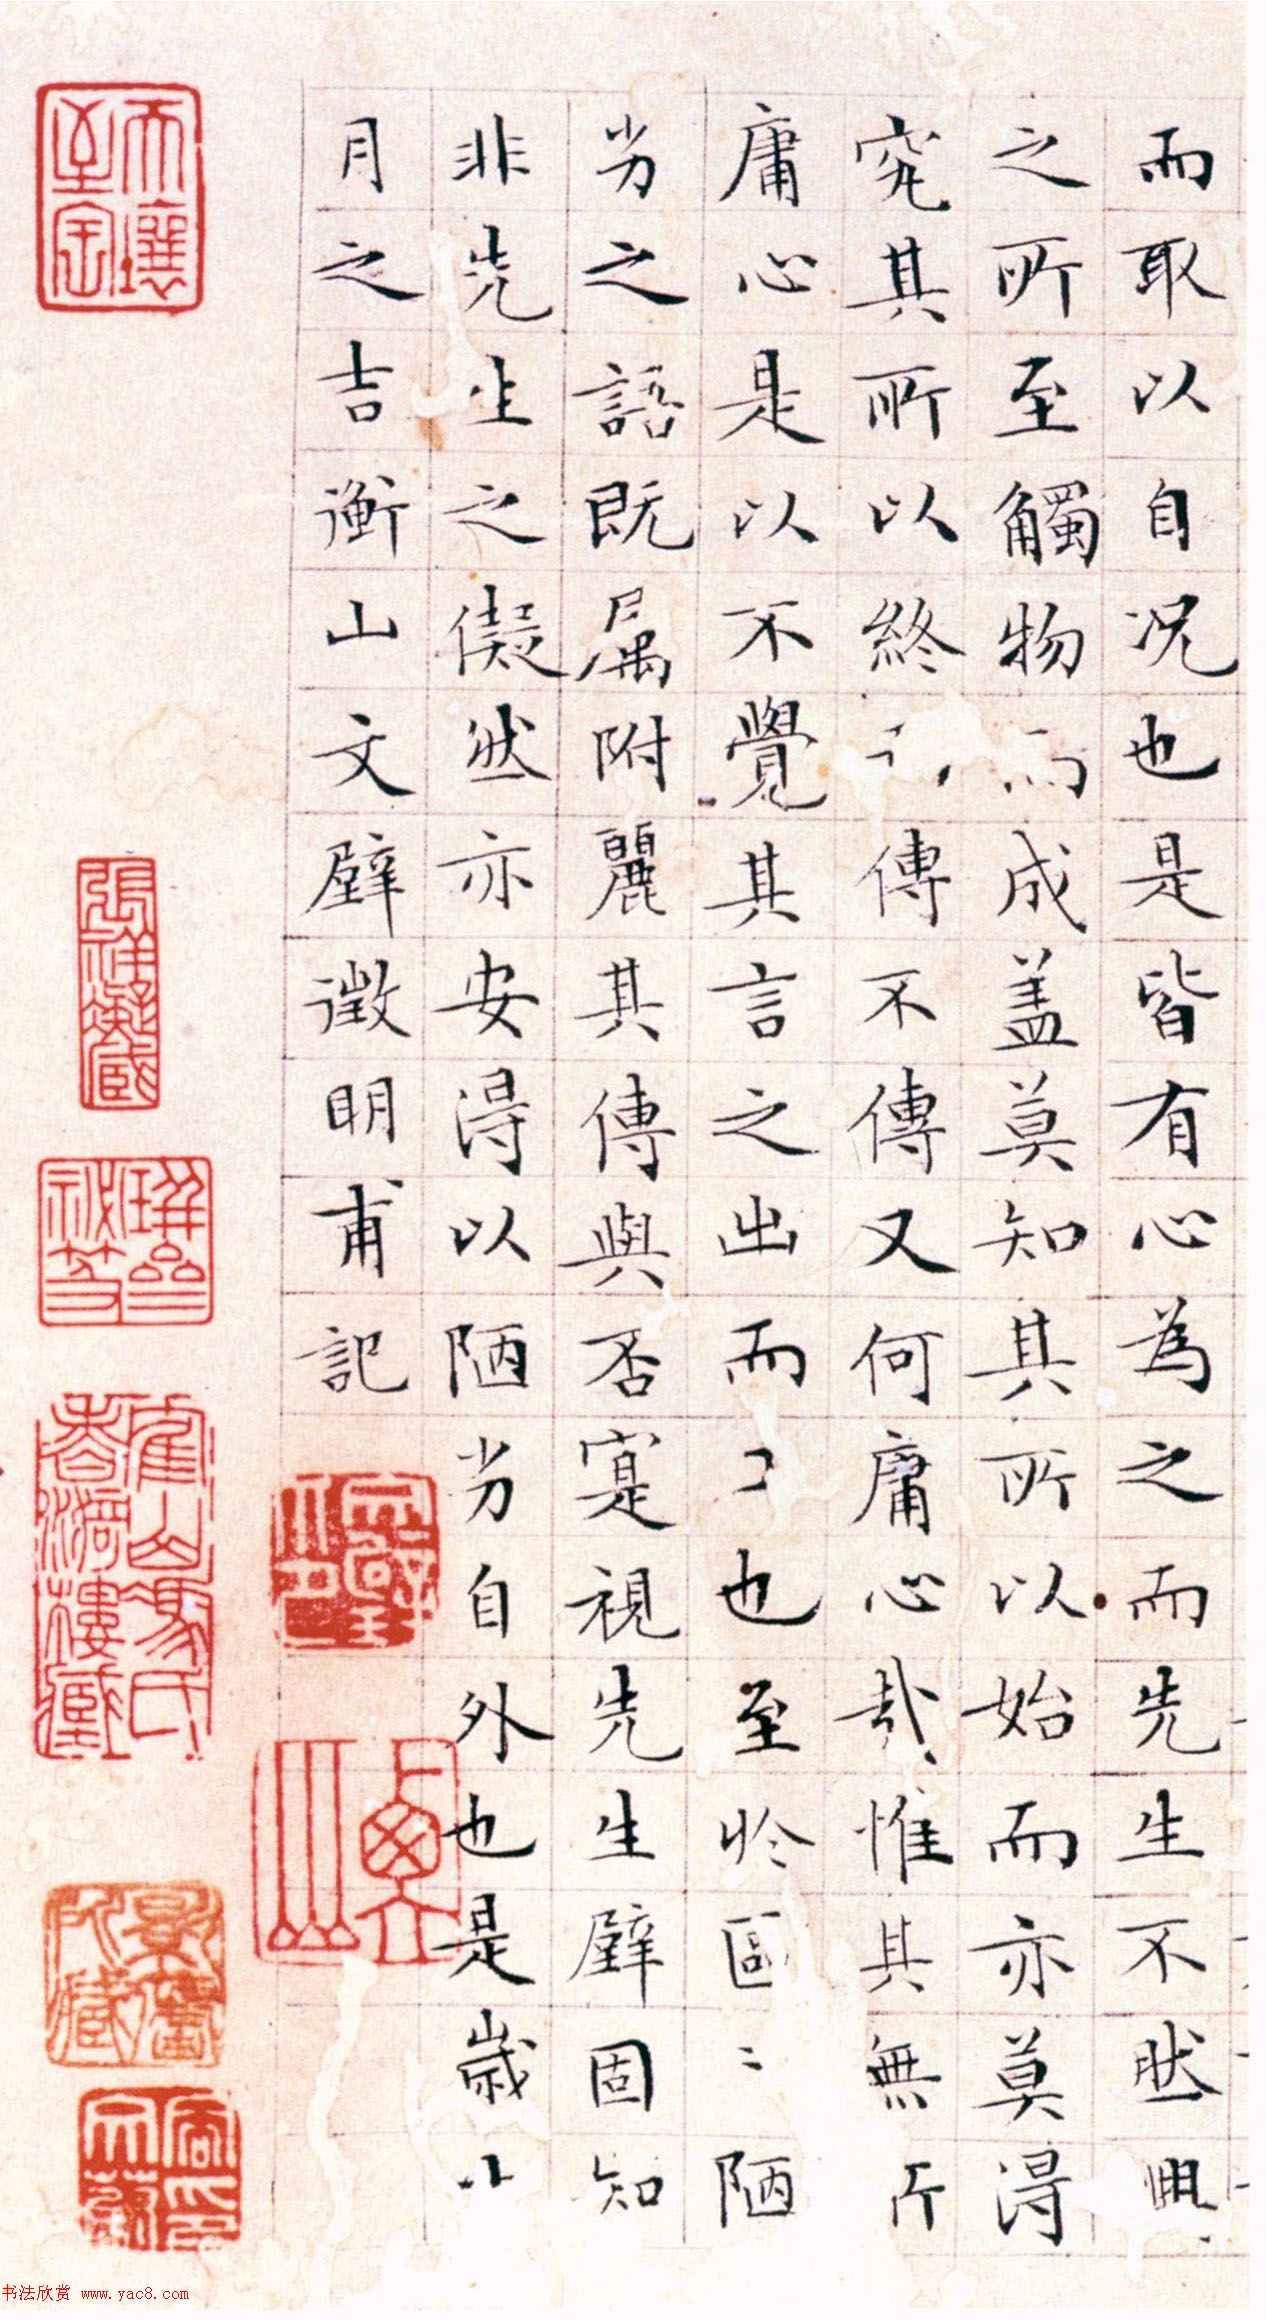 而取以自况也是皆有心為之而先生不然興
之所至觸物而成盖莫知其所以始而亦莫得
究其所以終 傳不傳又何庸心哉惟其無所
庸心是以不覺其言之出而工也至於區〻陋
劣之語既属附麗其傳與否寔視先生璧固知
非先生之儗然亦安得以陋劣自外也是歲
月之吉衡山文璧徵明甫記
書法欣赏 www.yac8.com